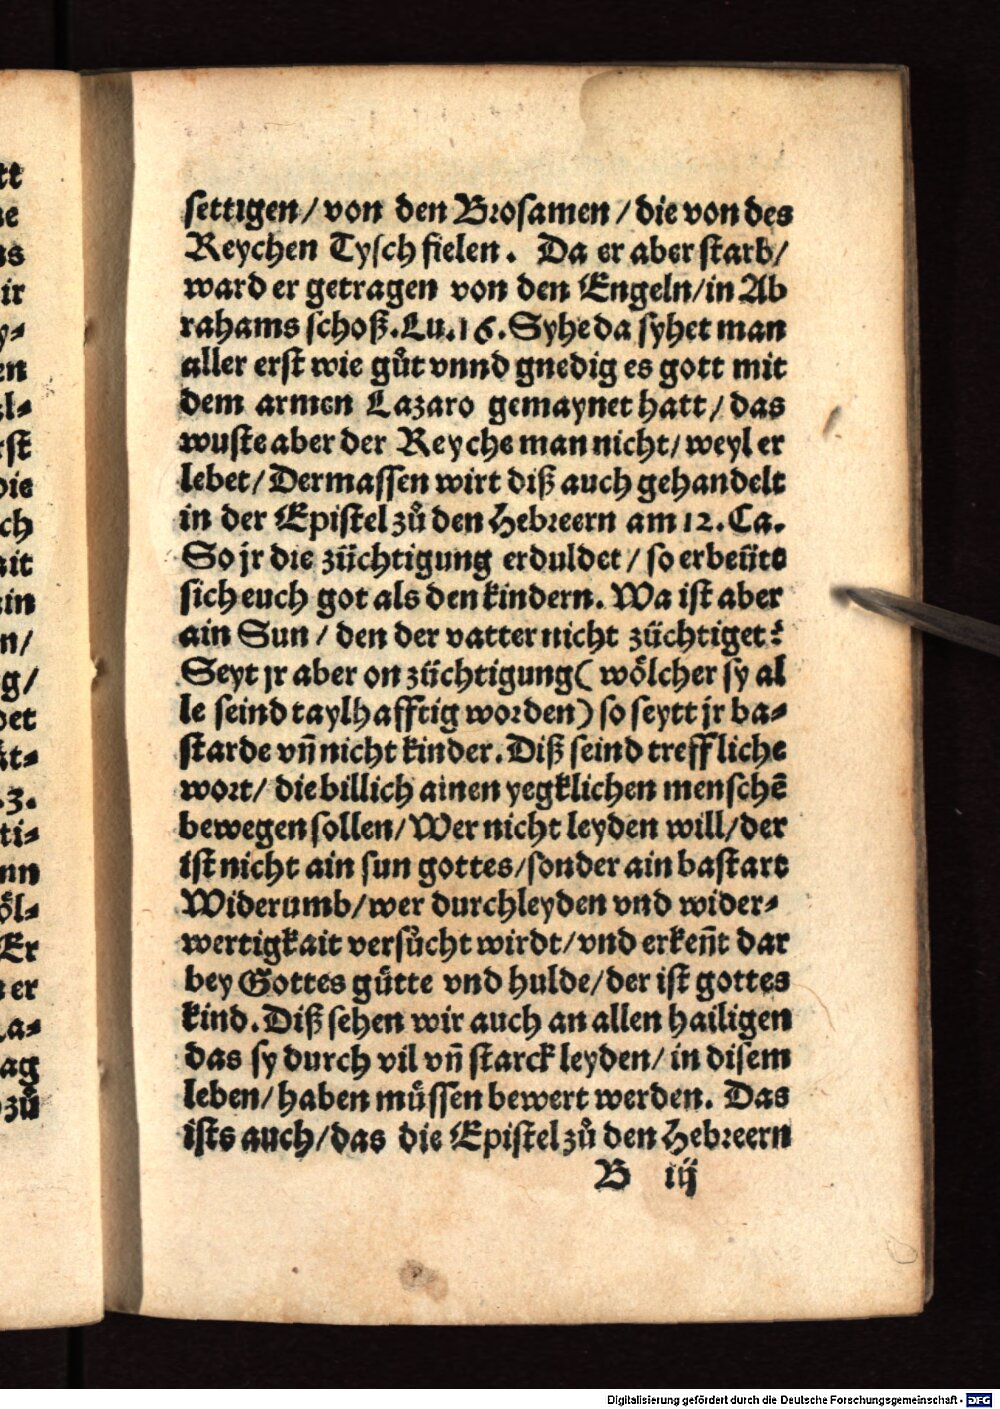 settigen/ von den Brosamen/ die von des
Reychen Tysch fielen. Da er aber starb/
ward er getragen von den Engeln/ in Ab
rahams schoß. Lu. 16. Syhe da syhet man
aller erst wie gůt vnnd gnedig es gott mit
dem armen Lazaro gemaynet hatt/ das
wuste aber der Reyche man nicht/ weyl er
lebet/ Dermassen wirt diß auch gehandelt
in der Epistel zů den Hebreern am 12. Ca.
So jr die züchtigung erduldet/ so erbeüte
sich euch got als den kindern. Wa ist aber
ain Sun/ den der vatter nicht züchtiget?
Seyt jr aber on züchtigung( wölcher sy al
le seind taylhafftig worden) so seytt jr ba-
starde vñ nicht kinder. Diß seind treffliche
wort/ die billich ainen yegklichen menschē
bewegen sollen/ Wer nicht leyden will/ der
ist nicht ain sun gottes/ sonder ain bastart
Widerumb/ wer durch leyden vnd wider-
wertigkait versůcht wirdt/ vnd erkeñt dar
bey Gottes gütte vnd hulde/ der ist gottes
kind. Diß sehen wir auch an allen hailigen
das sy durch vil vñ starck leyden/ in disem
leben/ haben müssen bewert werden. Das
ists auch/ das die Epistel zů den Hebreern
B iij
tt
ir
en
rst
die
ch
ait
ein
n/
g/
det
.3.
ti-
nn
öl-
Er
er
La-
ag
zů
Digitalisierung gefördert durch die Deutsche Forschungsgemeinschaft - DFG